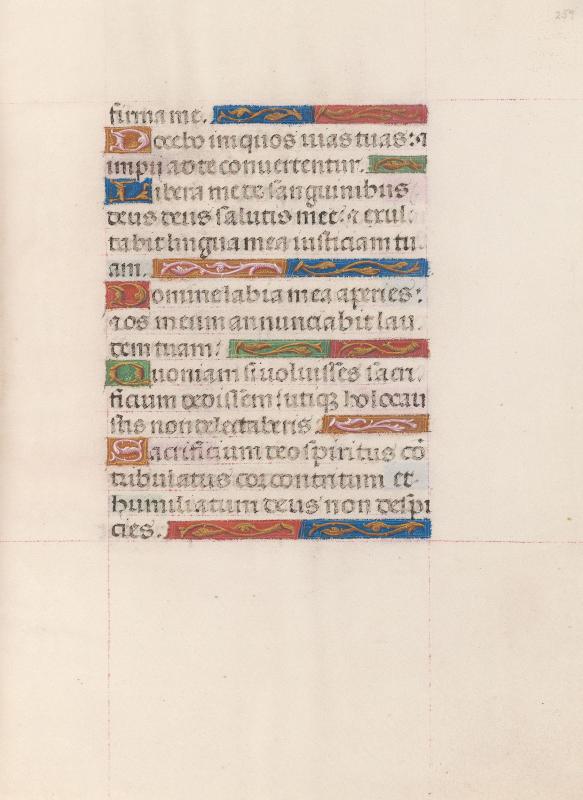 259
firma me.
Docebo iniquos vias tuas: ⁊
impii ad te convertentur.
Libera me de sanguinibus
deus deus salutis mee: ⁊ exul-
tabit lingua mea iusticiam tu-
am.
Domine labia mea aperies:
⁊ os meum annunciabit lau-
dem tuam:
Quoniam si voluisses sacri-
ficium dedissem utiqz holocau
stis non delectaberis.
Sacrificium deo spiritus cō
tribulatus cor contritum et
humiliatum deus non despi
cies.